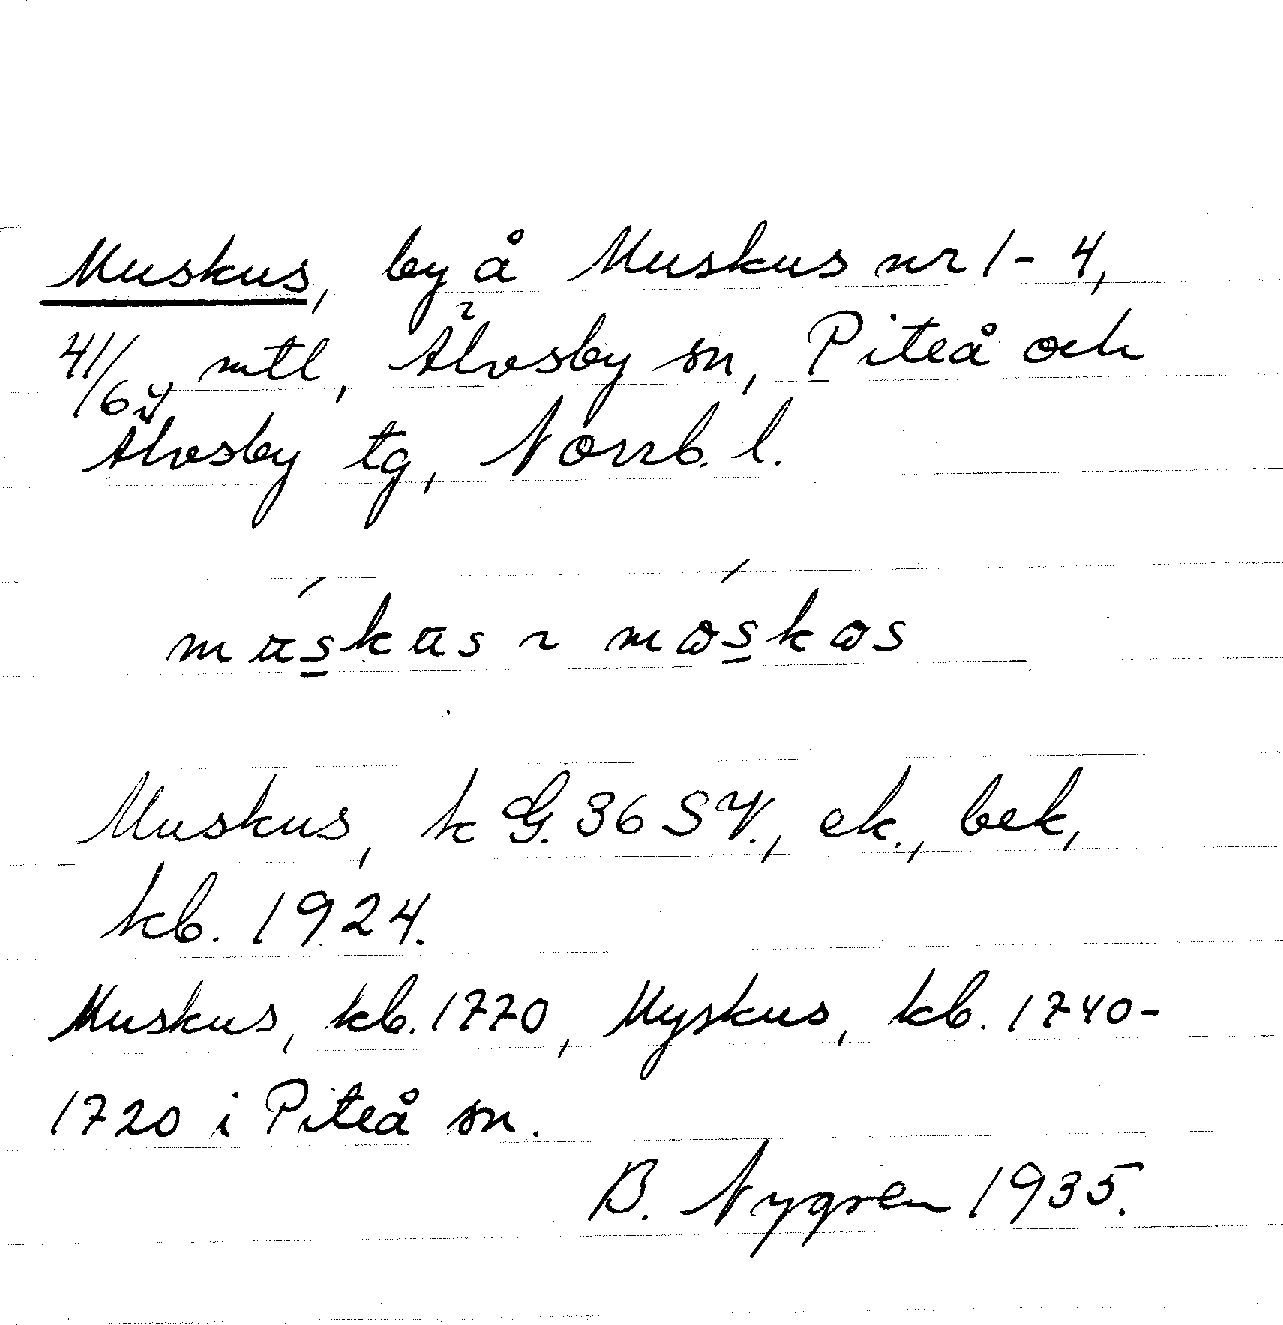 Muskus, by å Muskus nr 1-4,
41/64 mtl, Älvsby sn, Piteå och
Älvsby tg, Norrb. l.
máskas ~ móskos
Muskus, k G. 36 SV., ek., bek,
kb. 1924.
Muskus, kb. 1770, Myskus, kb. 1740-
1720 i Piteå sn.
B. Nygren 1935.